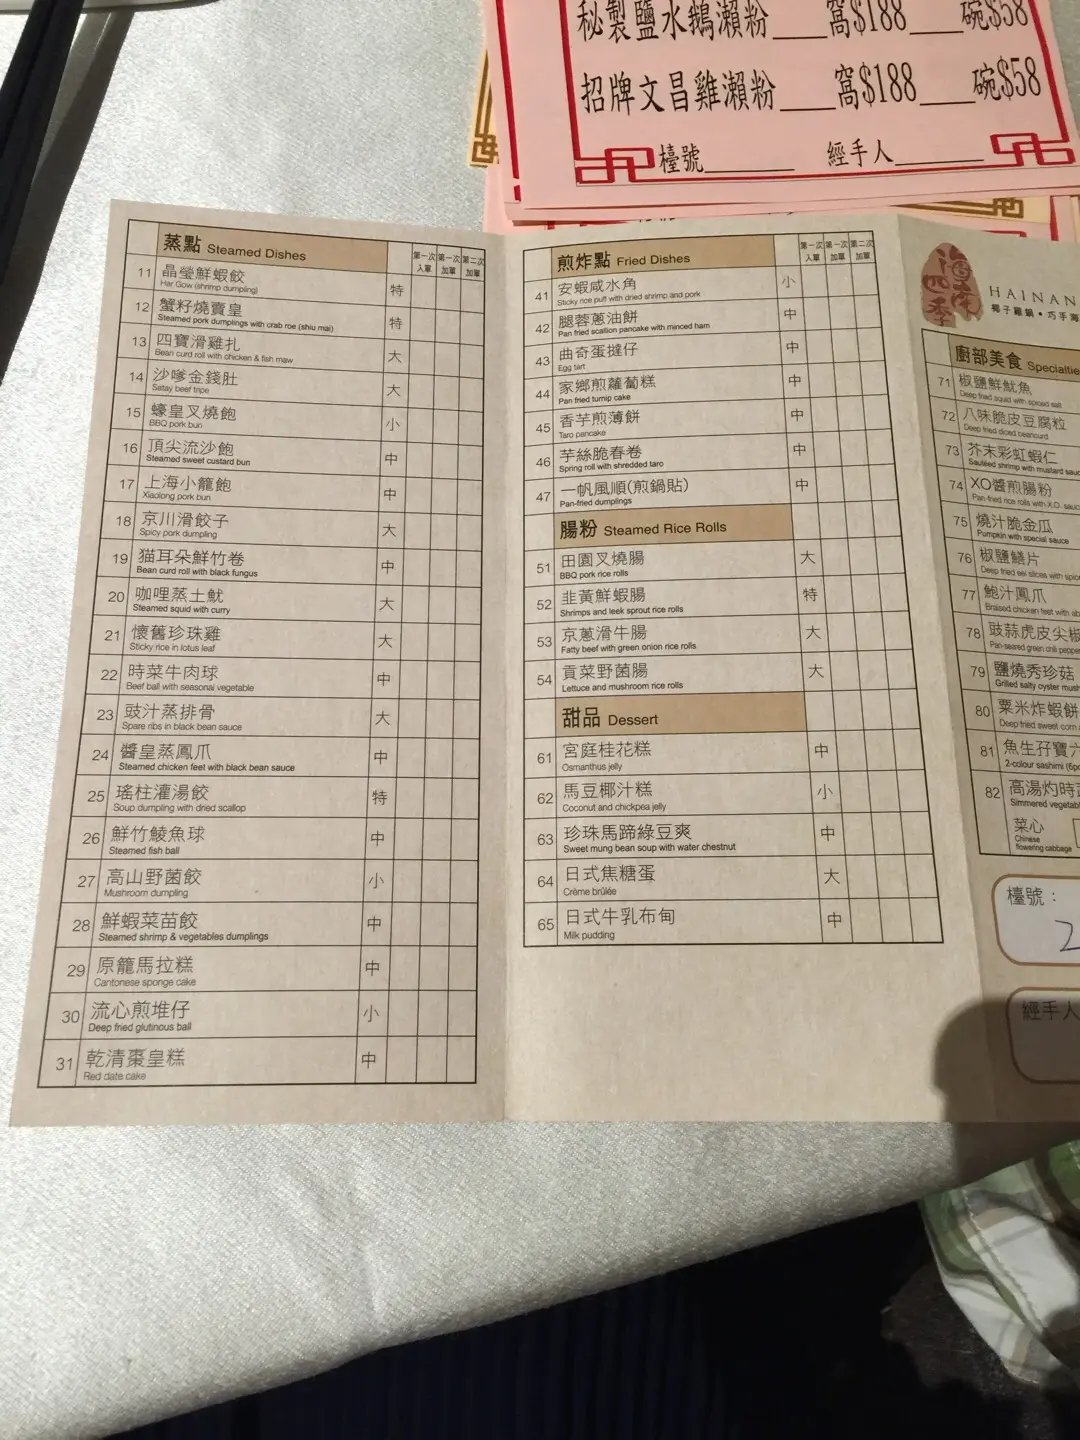 秘製鹽水鵝瀨粉____窩$188____碗$58
招牌文昌雞瀨粉____窩$188____碗$58
檯號________ 經手人________
蒸點 Steamed Dishes 第一次入單 第一次加單 第二次加單
11 晶瑩鮮蝦餃 特
Har Gow (shrimp dumpling)
12 蟹籽燒賣皇 特
Steamed pork dumplings with crab roe (shiu mai)
13 四寶滑雞扎 大
Bean curd roll with chicken & fish maw
14 沙嗲金錢肚 大
Satay beef tripe
15 蠔皇叉燒飽 小
BBQ pork bun
16 頂尖流沙飽 中
Steamed sweet custard bun
17 上海小籠飽 中
Xiaolong pork bun
18 京川滑餃子 大
Spicy pork dumpling
19 猫耳朵鮮竹卷 中
Bean curd roll with black fungus
20 咖哩蒸土魷 大
Steamed squid with curry
21 懷舊珍珠雞 大
Sticky rice in lotus leaf
22 時菜牛肉球 中
Beef ball with seasonal vegetable
23 豉汁蒸排骨 大
Spare ribs in black bean sauce
24 醬皇蒸鳳爪 中
Steamed chicken feet with black bean sauce
25 瑤柱灌湯餃 特
Soup dumpling with dried scallop
26 鮮竹鯪魚球 中
Steamed fish ball
27 高山野菌餃 小
Mushroom dumpling
28 鮮蝦菜苗餃 中
Steamed shrimp & vegetables dumplings
29 原籠馬拉糕 中
Cantonese sponge cake
30 流心煎堆仔 小
Deep fried glutinous ball
31 乾清棗皇糕 中
Red date cake
煎炸點 Fried Dishes 第一次入單 第一次加單 第二次加單
41 安蝦咸水角 小
Sticky rice puff with dried shrimp and pork
42 腿蓉蔥油餅 中
Pan fried scallion pancake with minced ham
43 曲奇蛋撻仔 中
Egg tart
44 家鄉煎蘿蔔糕 中
Pan fried turnip cake
45 香芋煎薄餅 中
Taro pancake
46 芋絲脆春卷 中
Spring roll with shredded taro
47 一帆風順(煎鍋貼) 中
Pan-fried dumplings
腸粉 Steamed Rice Rolls
51 田園叉燒腸 大
BBQ pork rice rolls
52 韭黃鮮蝦腸 特
Shrimps and leek sprout rice rolls
53 京蔥滑牛腸 大
Fatty beef with green onion rice rolls
54 貢菜野菌腸 大
Lettuce and mushroom rice rolls
甜品 Dessert
61 宮庭桂花糕 中
Osmanthus jelly
62 馬豆椰汁糕 小
Coconut and chickpea jelly
63 珍珠馬蹄綠豆爽 中
Sweet mung bean soup with water chestnut
64 日式焦糖蛋 大
Crème brûlée
65 日式牛乳布甸 中
Milk pudding
海南四季
HAINAN
椰子雞鍋•巧手海
廚部美食 Specialtie
71 椒鹽鮮魷魚
Deep fried squid with spiced salt
72 八味脆皮豆腐粒
Deep fried diced beancurd
73 芥末彩虹蝦仁
Sautéed shrimp with mustard sauc
74 XO醬煎腸粉
Pan-fried rice rolls with X.O. sauc
75 燒汁脆金瓜
Pumpkin with special sauce
76 椒鹽鱔片
Deep fried eel slices with spice
77 鮑汁鳳爪
Braised chicken feet with ab
78 豉蒜虎皮尖椒
Pan-seared green chili pepper
79 鹽燒秀珍菇
Grilled salty oyster mush
80 粟米炸蝦餅
Deep fried sweet corn
81 魚生孖寶六
2-colour sashimi (6pc
82 高湯灼時
Simmered vegetab
菜心
Chinese flowering cabbage
檯號：
2
經手人